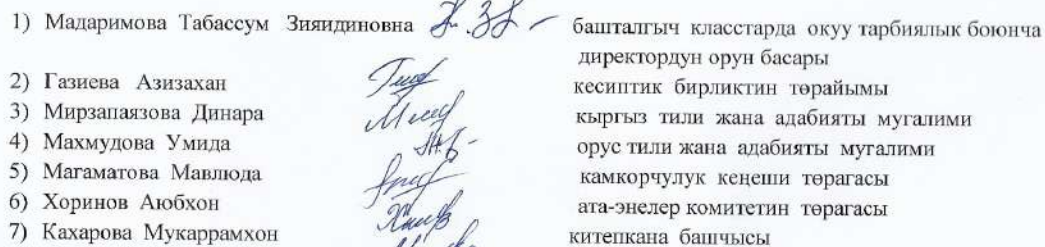 1) Мадаримова Табассум Зияидиновна башталгыч класстарда окуу тарбиялык боюнча
директордун орун басары
2) Газиева Азизахан кесиптик бирликтин төрайымы
3) Мирзапаязова Динара кыргыз тили жана адабияты мугалими
4) Махмудова Умида орус тили жана адабияты мугалими
5) Магаматова Мавлюда камкорчулук кеңеши төрагасы
6) Хоринов Аюбхон ата-энелер комитетин төрагасы
7) Кахарова Мукаррамхон китепкана башчысы